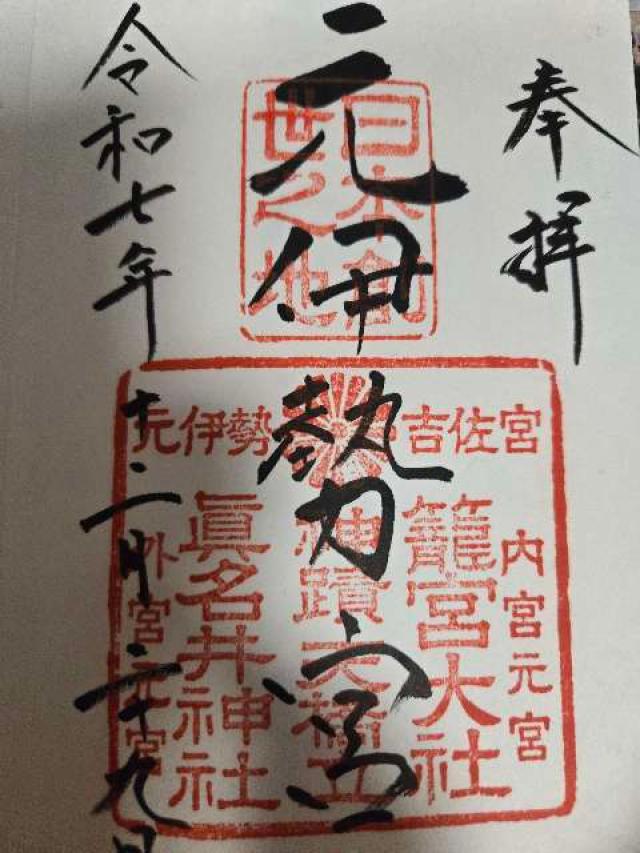 奉拝
元伊勢宮
令和七年十二月二十九日
日本創
世之地
元伊勢 吉佐宮
内宮元宮
籠宮大社
神蹟天橋立
眞名井神社
外宮元宮